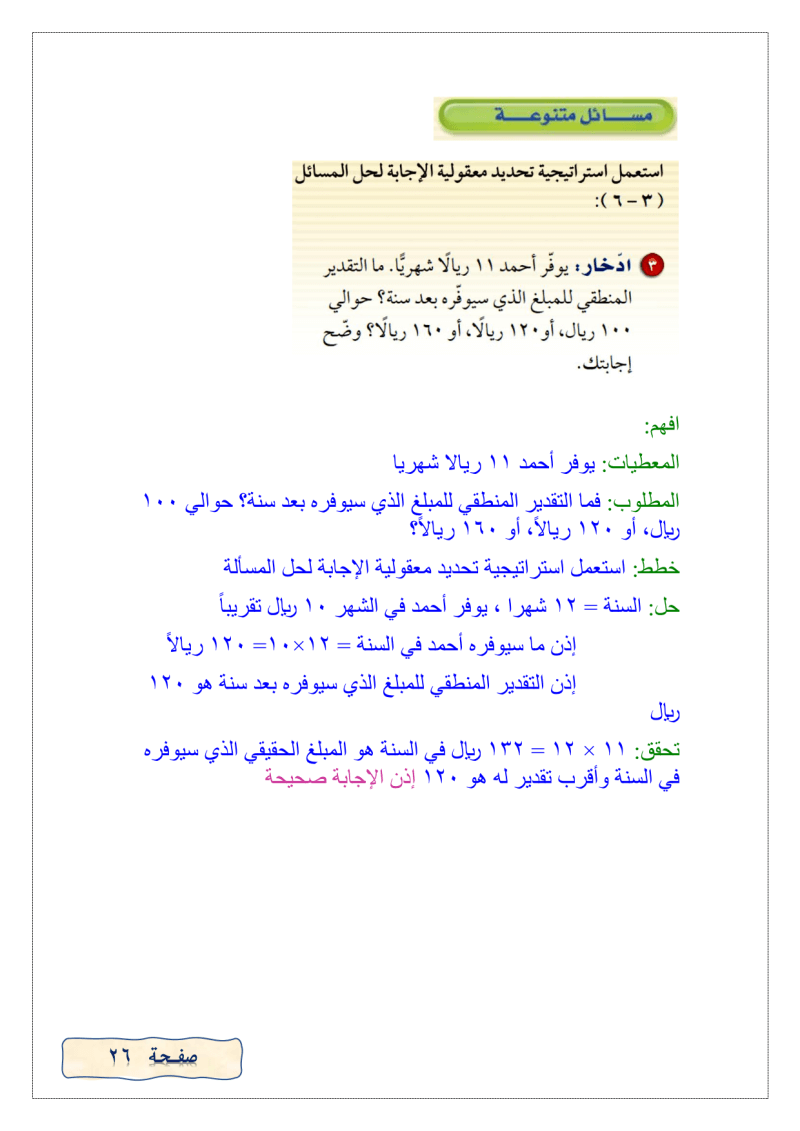 مسائل متنوعة
استعمل استراتيجية تحديد معقولية الإجابة لحل المسائل
( ٣ – ٦ ):
٣ ادّخار: يوفّر أحمد ١١ ريالًا شهريًّا. ما التقدير
المنطقي للمبلغ الذي سيوفّره بعد سنة؟ حوالي
١٠٠ ريال، أو ١٢٠ ريالًا، أو ١٦٠ ريالًا؟ وضّح
إجابتك.
افهم:
المعطيات: يوفر أحمد ١١ ريالا شهريا
المطلوب: فما التقدير المنطقي للمبلغ الذي سيوفره بعد سنة؟ حوالي ١٠٠
ريال، أو ١٢٠ ريالاً، أو ١٦٠ ريالاً؟
خطط: استعمل استراتيجية تحديد معقولية الإجابة لحل المسألة
حل: السنة = ١٢ شهرا ، يوفر أحمد في الشهر ١٠ ريال تقريباً
إذن ما سيوفره أحمد في السنة = ١٢×١٠= ١٢٠ ريالاً
إذن التقدير المنطقي للمبلغ الذي سيوفره بعد سنة هو ١٢٠
ريال
تحقق: ١١ × ١٢ = ١٣٢ ريال في السنة هو المبلغ الحقيقي الذي سيوفره
في السنة وأقرب تقدير له هو ١٢٠ إذن الإجابة صحيحة
صفحة ٢٦